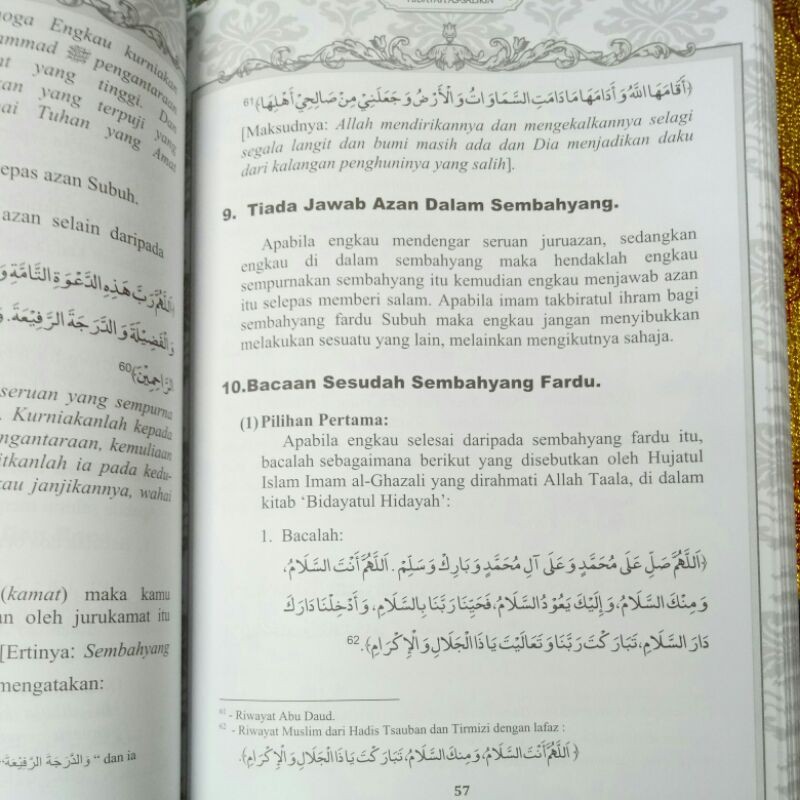 oga Engkau kurniakan
ammad ﷺ pengantaraan
at yang tinggi. Dan
kan yang terpuji yang
ai Tuhan yang Amat
epas azan Subuh.
azan selain daripada
اللَّهُمَّ رَبَّ هَذِهِ الدَّعْوَةِ التَّامَّةِ وَ
وَالْفَضِيْلَةَ وَالدَّرَجَةَ الرَّفِيْعَةَ. وَ
الرَّاحِمِيْنَ﴾60
seruan yang sempurna
. Kurniakanlah kepada
ngantaraan, kemuliaan
itkanlah ia pada kedu-
au janjikannya, wahai
(kamat) maka kamu
n oleh jurukamat itu
[Ertinya: Sembahyang
mengatakan:
وَالدَّرَجَةَ الرَّفِيْعَةَ " dan ia
HIDAYAH ASSALIKIN
﴿أَقَامَهَا اللَّهُ وَأَدَامَهَا مَا دَامَتِ السَّمَاوَاتُ وَالْأَرْضُ وَجَعَلَنِيْ مِنْ صَالِحِيْ أَهْلِهَا﴾61
[Maksudnya: Allah mendirikannya dan mengekalkannya selagi
segala langit dan bumi masih ada dan Dia menjadikan daku
dari kalangan penghuninya yang salih].
9. Tiada Jawab Azan Dalam Sembahyang.
Apabila engkau mendengar seruan juruazan, sedangkan
engkau di dalam sembahyang maka hendaklah engkau
sempurnakan sembahyang itu kemudian engkau menjawab azan
itu selepas memberi salam. Apabila imam takbiratul ihram bagi
sembahyang fardu Subuh maka engkau jangan menyibukkan
melakukan sesuatu yang lain, melainkan mengikutnya sahaja.
10.Bacaan Sesudah Sembahyang Fardu.
(1) Pilihan Pertama:
Apabila engkau selesai daripada sembahyang fardu itu,
bacalah sebagaimana berikut yang disebutkan oleh Hujatul
Islam Imam al-Ghazali yang dirahmati Allah Taala, di dalam
kitab 'Bidayatul Hidayah':
1. Bacalah:
﴿اَللَّهُمَّ صَلِّ عَلَى مُحَمَّدٍ وَعَلَى آلِ مُحَمَّدٍ وَبَارِكْ وَسَلِّمْ. اَللَّهُمَّ أَنْتَ السَّلَامُ،
وَمِنْكَ السَّلَامُ، وَإِلَيْكَ يَعُوْدُ السَّلَامُ، فَحَيِّنَا رَبَّنَا بِالسَّلَامِ، وَأَدْخِلْنَا دَارَكَ
دَارَ السَّلَامِ، تَبَارَكْتَ رَبَّنَا وَتَعَالَيْتَ يَا ذَا الْجَلَالِ وَالْإِكْرَامِ﴾.62
61 - Riwayat Abu Daud.
62 - Riwayat Muslim dari Hadis Tsauban dan Tirmizi dengan lafaz :
﴿اَللَّهُمَّ أَنْتَ السَّلَامُ، وَمِنْكَ السَّلَامُ، تَبَارَكْتَ يَا ذَا الْجَلَالِ وَالْإِكْرَامِ﴾.
57